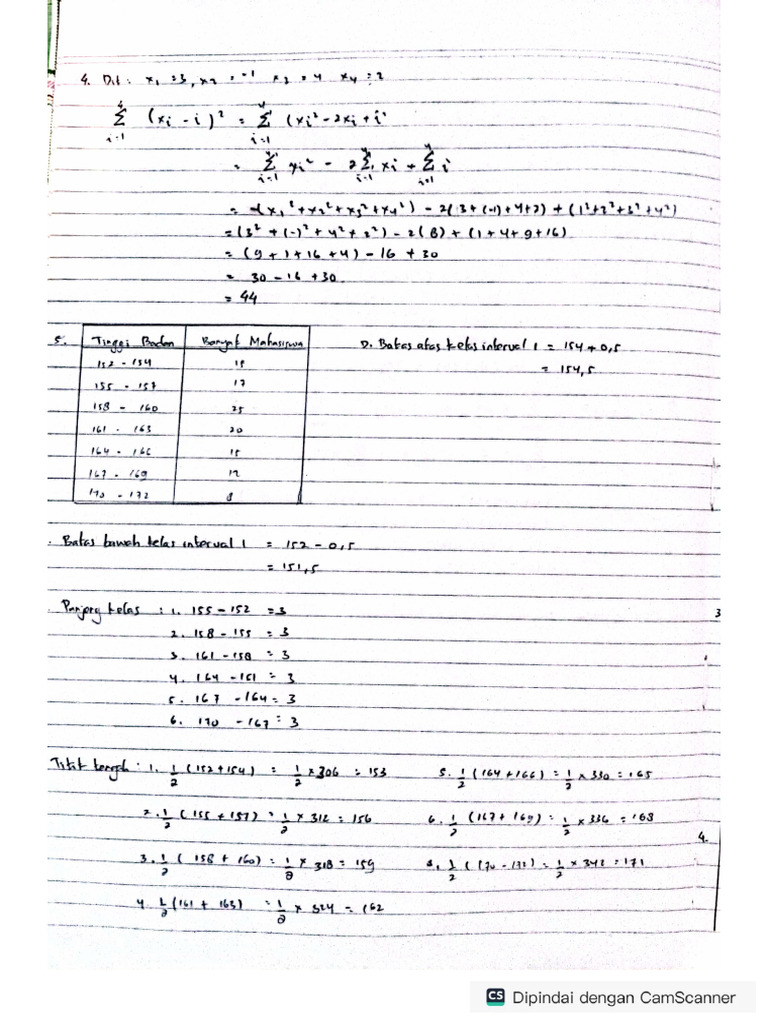 4. Dit : x₁ = 3, x₂ = -1 x₃ = 4 x₄ = 2
4 Σ i=1 (xi - i)² = 4 Σ i=1 (xi² - 2xi + i²
= 4 Σ i=1 xi² - 2 4 Σ i=1 xi + 4 Σ i=1 i
= (x₁² + x₂² + x₃² + x₄²) - 2(3 + (-1) + 4 + 2) + (1² + 2² + 3² + 4²)
= (3² + (-)² + 4² + 2²) - 2(8) + (1 + 4 + 9 + 16)
= (9 + 1 + 16 + 4) - 16 + 30
= 30 - 16 + 30
= 44
5. Tinggi Badan Banyak Mahasiswa
152 - 154
155 - 157 17
158 - 160 25
161 - 163 20
164 - 166
167 - 169 12
170 - 172 8
D. Batas atas kelas interval 1 = 154 + 0,5
= 154,5
. Batas bawah kelas interval 1 = 152 - 0,5
= 151,5
Panjang kelas : 1. 155 - 152 = 3
2. 158 - 155 = 3
3. 161 - 158 = 3
4. 164 - 161 = 3
5. 167 - 164 = 3
6. 170 - 167 = 3
3
Titik tengah : 1. 1/2 (152 + 154) = 1/2 × 306 = 153 5. 1/2 (164 + 166) = 1/2 × 330 = 165
2. 1/2 (155 + 157) = 1/2 × 312 = 156 6. 1/2 (167 + 169) = 1/2 × 336 = 168
4.
3. 1/2 (158 + 160) = 1/2 × 318 = 159 1/2 (170 - 172) = 1/2 × 342 = 171
4. 1/2 (161 + 163) = 1/2 × 324 = 162
CS Dipindai dengan CamScanner